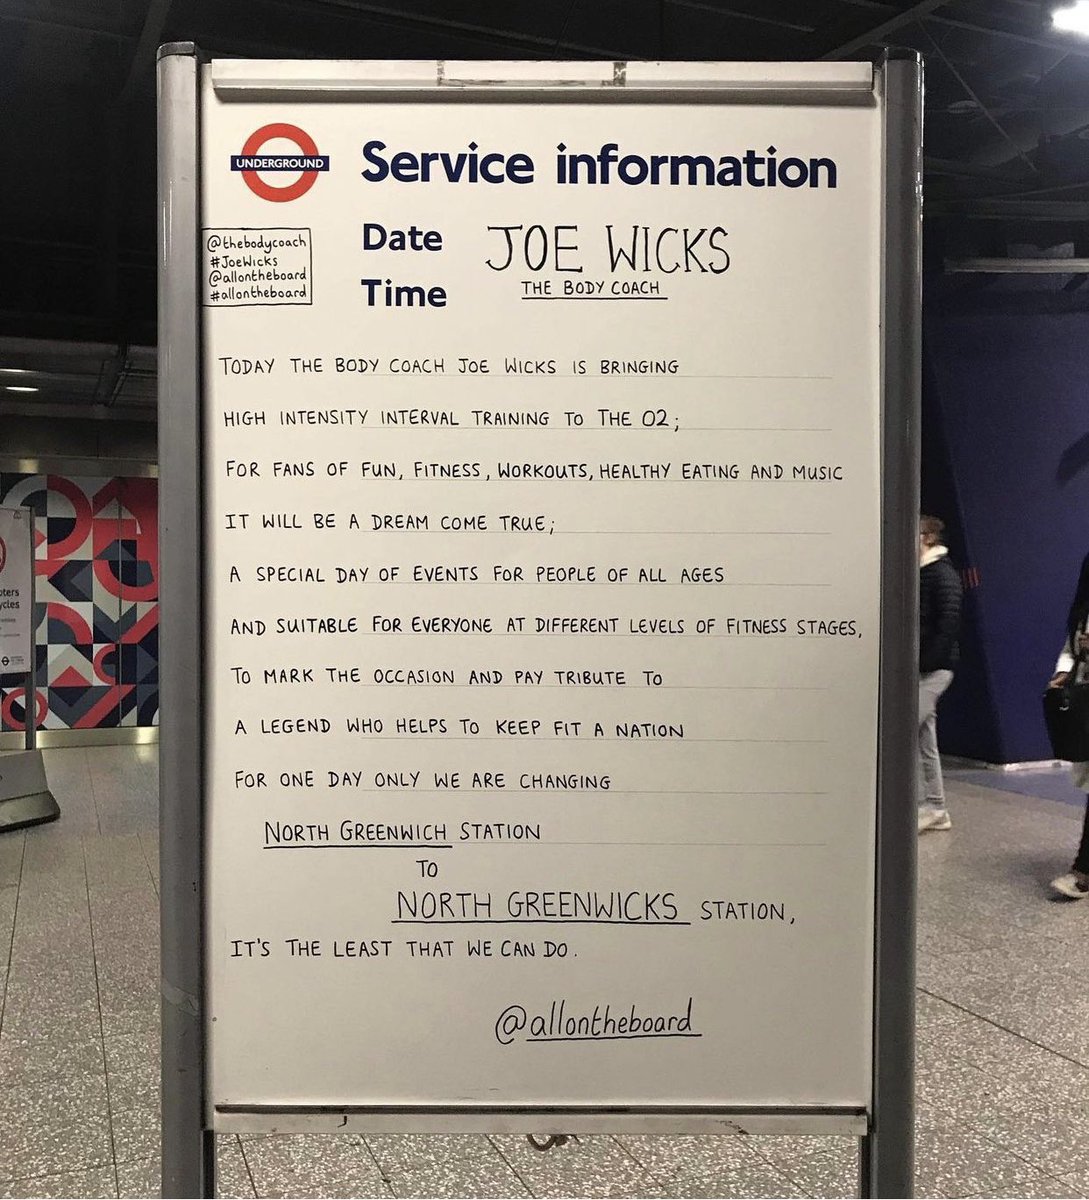 UNDERGROUND
Service information
@thebodycoach
#JoeWicks
@allontheboard
#allontheboard
Date
Time
JOE WICKS
THE BODY COACH
TODAY THE BODY COACH JOE WICKS IS BRINGING
HIGH INTENSITY INTERVAL TRAINING TO THE O2;
FOR FANS OF FUN, FITNESS, WORKOUTS, HEALTHY EATING AND MUSIC
IT WILL BE A DREAM COME TRUE;
A SPECIAL DAY OF EVENTS FOR PEOPLE OF ALL AGES
AND SUITABLE FOR EVERYONE AT DIFFERENT LEVELS OF FITNESS STAGES,
TO MARK THE OCCASION AND PAY TRIBUTE TO
A LEGEND WHO HELPS TO KEEP FIT A NATION
FOR ONE DAY ONLY WE ARE CHANGING
NORTH GREENWICH STATION
TO
NORTH GREENWICKS STATION,
IT'S THE LEAST THAT WE CAN DO.
@allontheboard